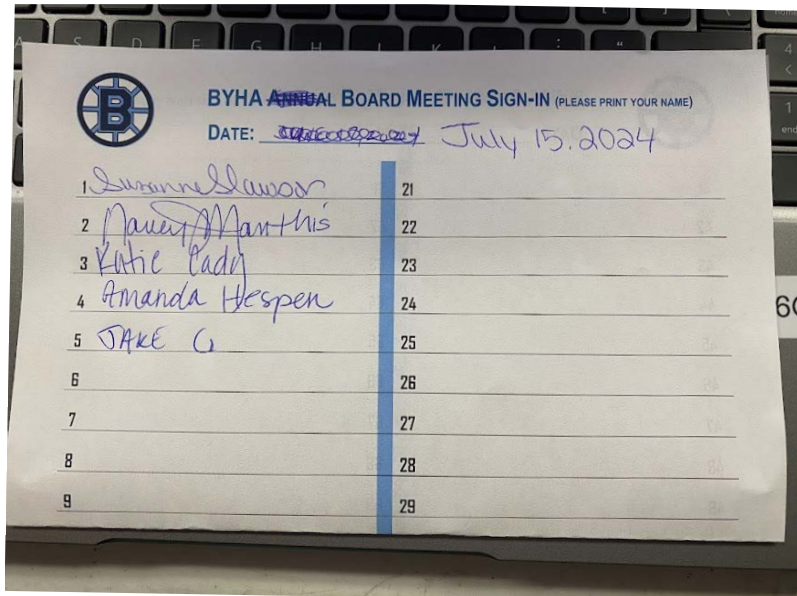 BYHA ANNUAL BOARD MEETING SIGN-IN (PLEASE PRINT YOUR NAME)
DATE: July 15. 2024
1 Suzanne Slawson
2 Nancy J Manthis
3 Katie Cady
4 Amanda Hespen
5 JAKE G
6
7
8
9
21
22
23
24
25
26
27
28
29